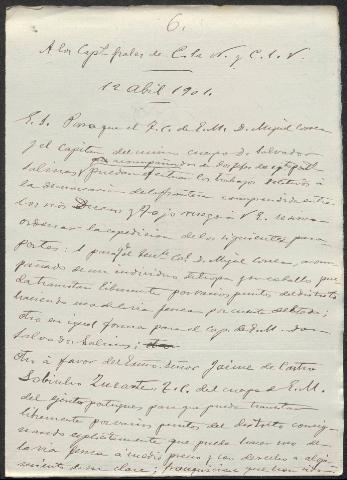 6.
A los Capt. grales de C. la N. y C. l. V.
12 Abil 1901.
E. S. Para que el T. C. de E. M. D. Miguel Correa
y el Capitan del mismo cuerpo D. Salvador
acompañados
Salinas puedan efectuar los trabajos relativos á
la demarcacion de la frontera comprendida entre
los rios Duero y Tajo ruego á V. E. se sirva
ordenar la expedicion de los siguientes pasa
portes: 1 para el Ten. Col. D. Miguel Correa, acom
pañado de un individuo de tropa y un caballo pue
da transitar libremente por varios puntos del distrito
haciendo uso de la via ferrea por cuenta del Estado;
Otro en igual forma para el cap. de E. M. Don
Salvador Salinas;
Otro á favor del Exmo. Señor Jaime de Castro
Sobrinho Duarte T. C. del cuerpo de E. M.
del ejército portugues para que pueda transitar
libremente por varios puntos del distrito consig
nando explicitamente que puede hacer uso de
la via ferrea á medio precio y con derecho á aloja
miento de su clase;